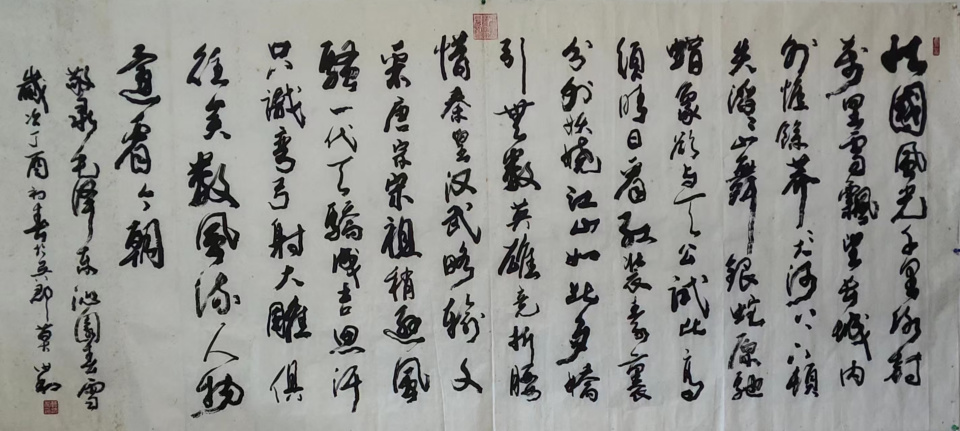 北國風光千里冰封
萬里雪飄望長城內
外惟餘莽〻大河上下頓
失滔〻山舞銀蛇原馳
蜡象欲與天公試比高
須晴日看紅裝素裹
分外妖嬈江山如此多嬌
引無數英雄竞折腰
惜秦皇汉武略輸文
采唐宗宋祖稍遜風
騷一代天驕成吉思汗
只識彎弓射大雕俱
往矣數風流人物
還看今朝
敬录毛澤东沁園春雪
歲次丁酉初春於吳郡